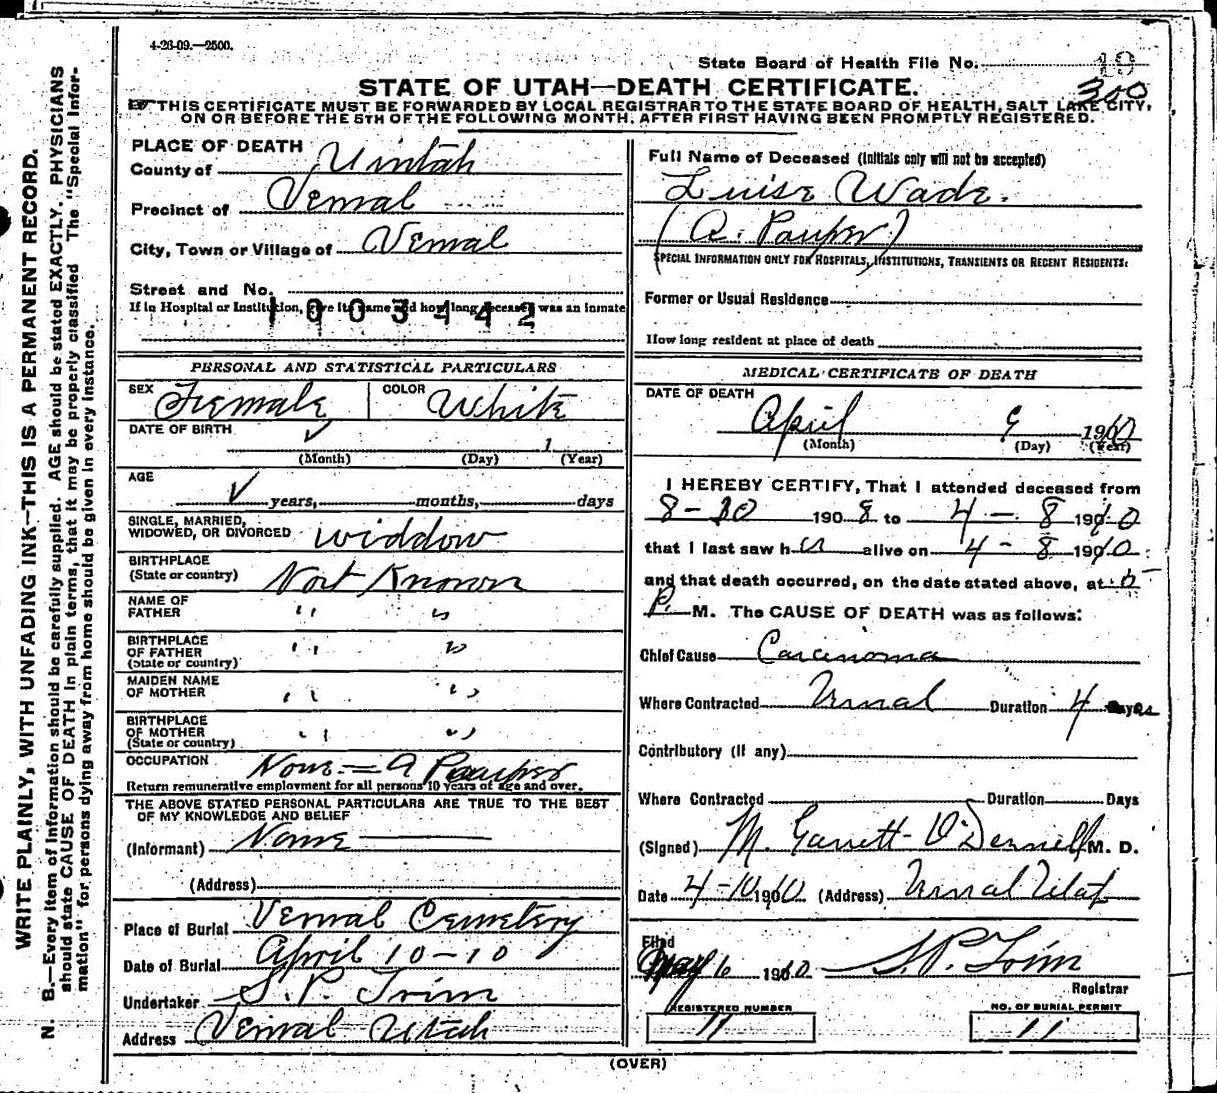 4-26-09.—2500.
State Board of Health File No. 19
300
STATE OF UTAH—DEATH CERTIFICATE.
THIS CERTIFICATE MUST BE FORWARDED BY LOCAL REGISTRAR TO THE STATE BOARD OF HEALTH, SALT LAKE CITY,
ON OR BEFORE THE 5TH OF THE FOLLOWING MONTH, AFTER FIRST HAVING BEEN PROMPTLY REGISTERED.
WRITE PLAINLY, WITH UNFADING INK—THIS IS A PERMANENT RECORD.
N. B.—Every item of information should be carefully supplied. AGE should be stated EXACTLY. PHYSICIANS
should state CAUSE OF DEATH in plain terms, that it may be properly classified The "Special Infor-
mation" for persons dying away from home should be given in every instance.
PLACE OF DEATH
County of Uintah
Precinct of Vernal
City, Town or Village of Vernal
Street and No.
If in Hospital or Institution, give its name and how long deceased was an inmate
1003442
PERSONAL AND STATISTICAL PARTICULARS
SEX Female COLOR White
DATE OF BIRTH ✓ 1
(Month) (Day) (Year)
AGE
✓ years, months, days
SINGLE, MARRIED,
WIDOWED, OR DIVORCED widdow
BIRTHPLACE
(State or country) Not Known
NAME OF
FATHER " "
BIRTHPLACE
OF FATHER " "
(State or country)
MAIDEN NAME
OF MOTHER " "
BIRTHPLACE
OF MOTHER " "
(State or country)
OCCUPATION None = A Pauper
Return remunerative employment for all persons 10 years of age and over.
THE ABOVE STATED PERSONAL PARTICULARS ARE TRUE TO THE BEST
OF MY KNOWLEDGE AND BELIEF
(Informant) None
(Address)
Place of Burial Vernal Cemetery
Date of Burial April 10-10
Undertaker S. P. Trim
Address Vernal Utah
Full Name of Deceased (Initials only will not be accepted)
Luise Wade.
(A. Pauper)
SPECIAL INFORMATION ONLY FOR HOSPITALS, INSTITUTIONS, TRANSIENTS OR RECENT RESIDENTS:
Former or Usual Residence
How long resident at place of death
MEDICAL CERTIFICATE OF DEATH
DATE OF DEATH
April 9 1910
(Month) (Day) (Year)
I HEREBY CERTIFY, That I attended deceased from
8-30 1908 to 4 - 8 1910
that I last saw her alive on 4 - 8 1910
and that death occurred, on the date stated above, at 5
P. M. The CAUSE OF DEATH was as follows:
Chief Cause Carcinoma
Where Contracted Vernal Duration 4 years
Contributory (if any)
Where Contracted Duration Days
(Signed) M. Garrett O'Donnell M. D.
Date 4-10 1910 (Address) Vernal Utah
Filed
May 6 1910 S. P. Trim
Registrar
REGISTERED NUMBER
11
NO. OF BURIAL PERMIT
11
(OVER)